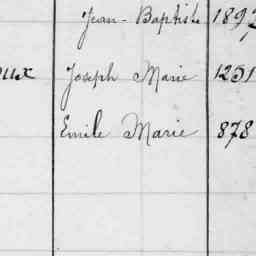 Jean-Baptiste 1892
oux Joseph Marie 1251
Emile Marie 878